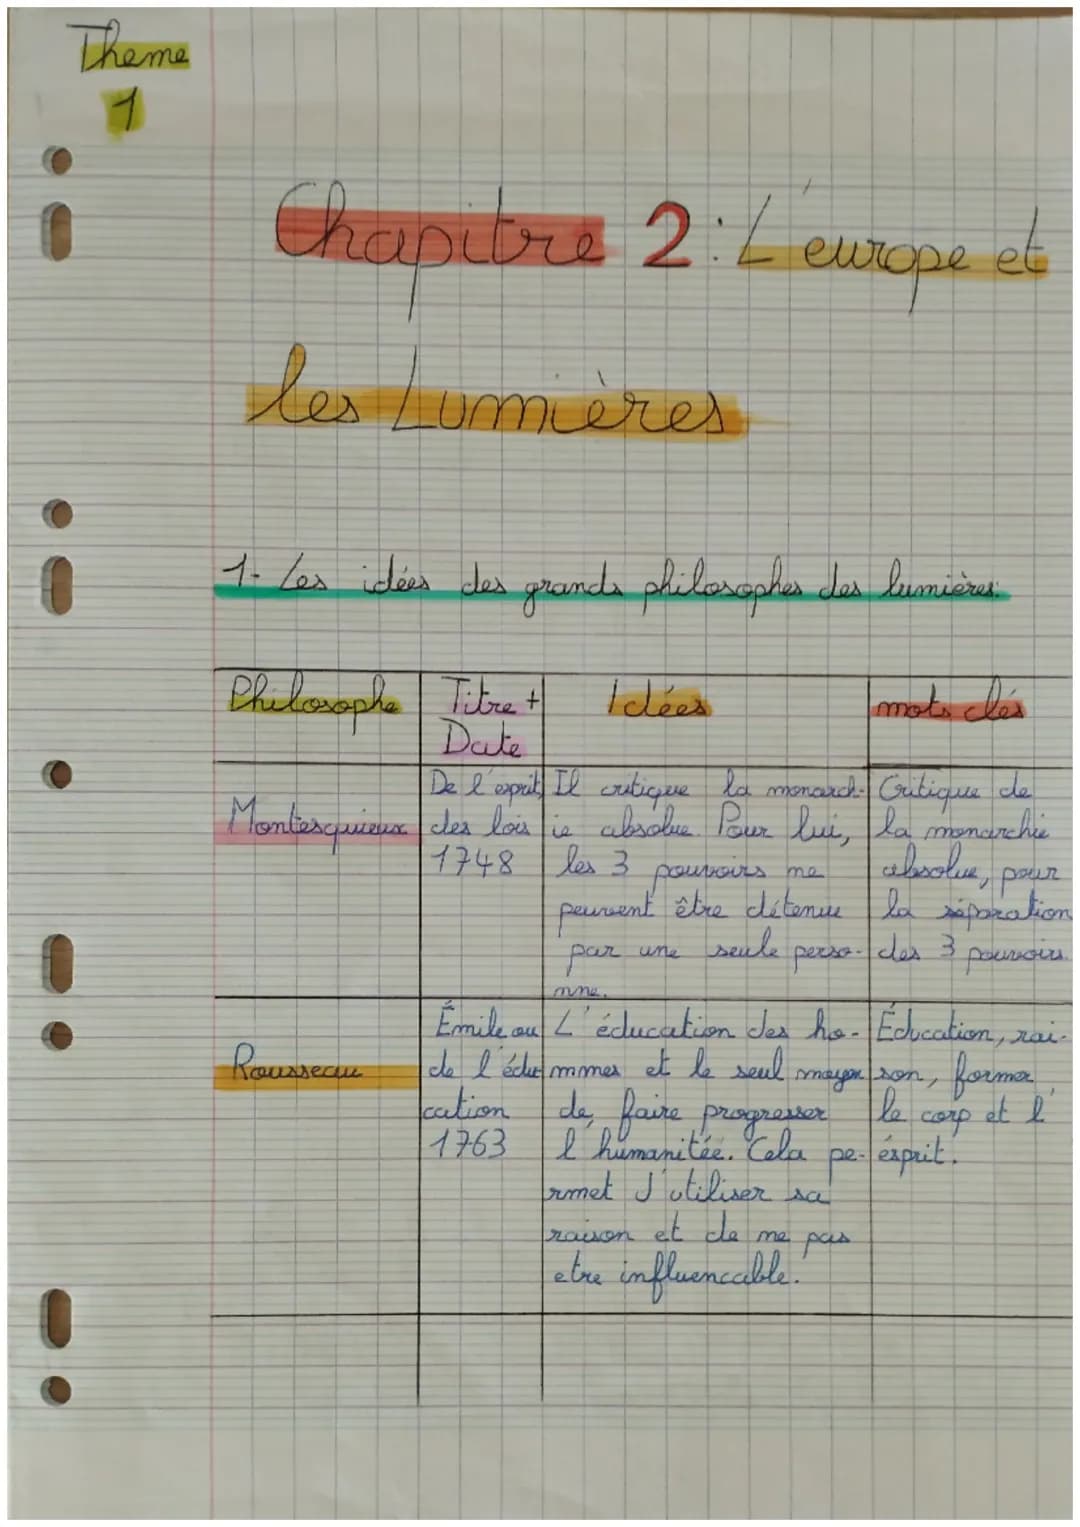 Theme
1
Chapitre 2: L'europe et
les Lumières
1- Les idées des grands philosophes des lumières:
Philosophe
Titre +
Date
Idées
mots clés
Montesquieux
De l'esprit
des lois
1748
Il critique la monarch-
ie absolue Pour lui,
les 3 pouvoirs ne
peuvent être détenue
par une seule perso-
nne.
Critique de
la monarchie
absolue, pour
la séparation
des 3 pouvoirs.
Rousseau
Émile ou
de l'édu
cation
1763
L'éducation des ho-
mmes et le seul moyen
de faire progresser
l'humanitée. Cela pe-
rmet d'utiliser sa
raison et de ne pas
etre influencable.
Éducation, rai-
son, former
le corp et l'
ésprit.